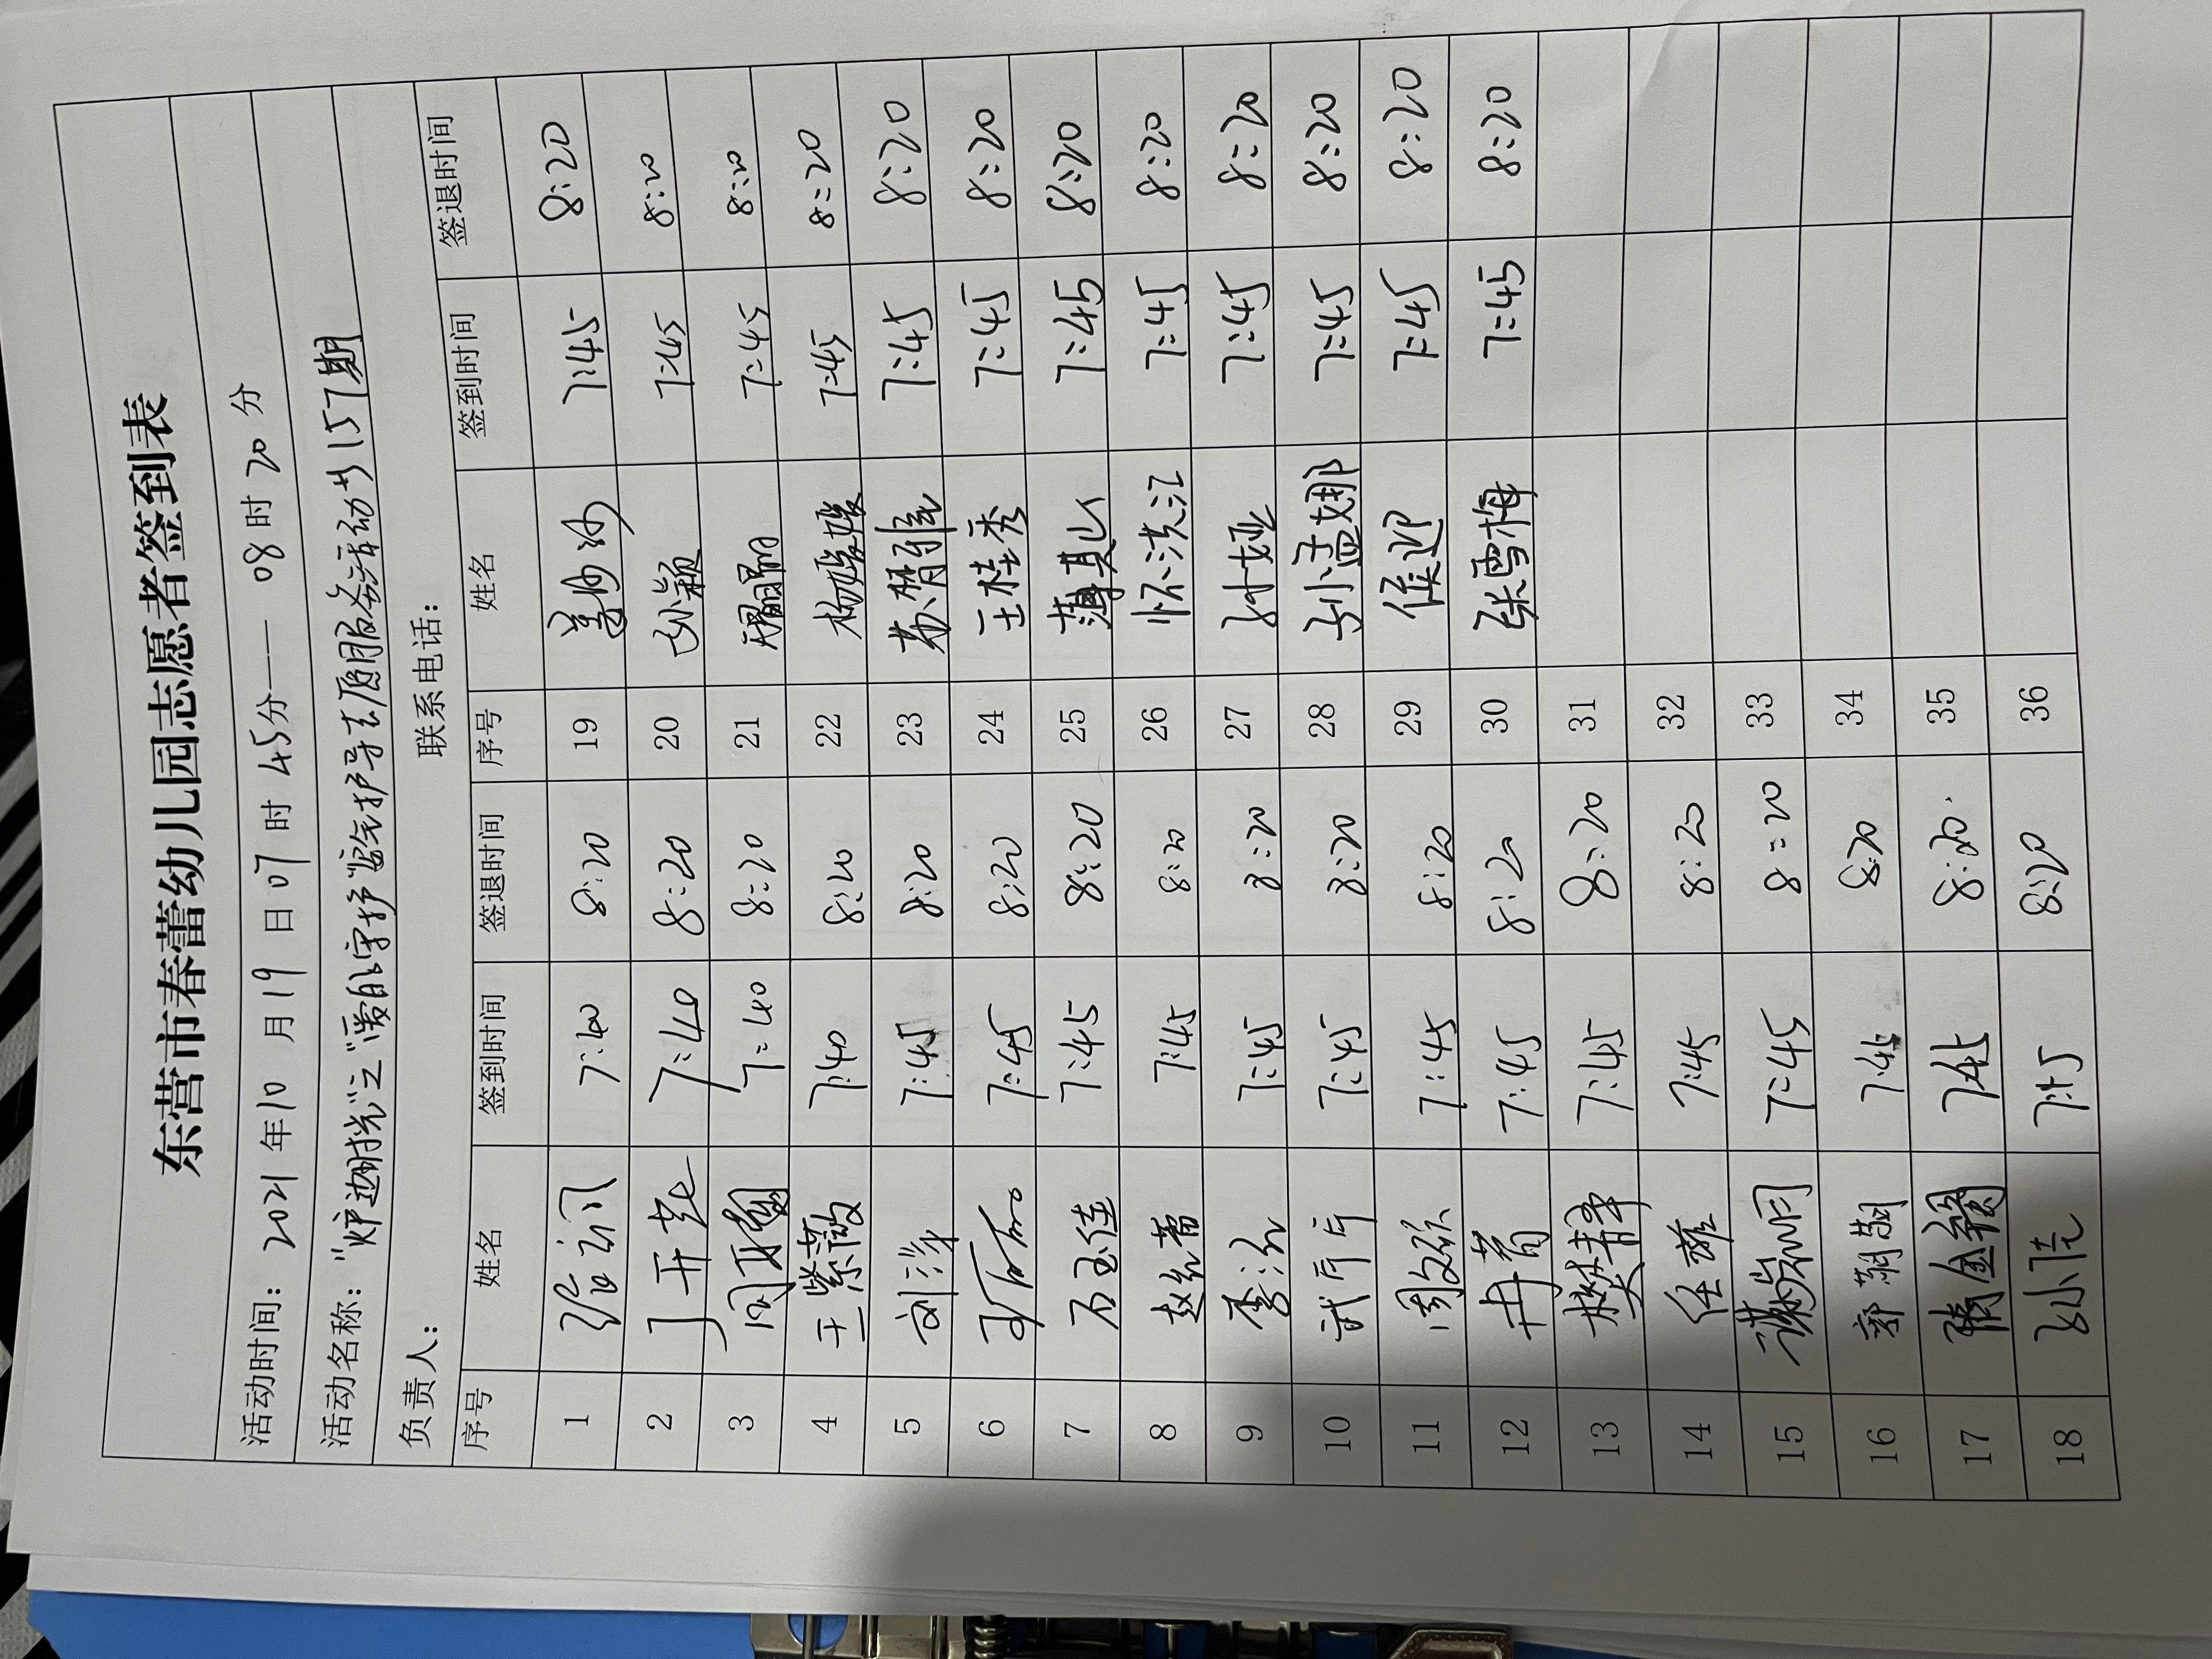 东营市春蕾幼儿园志愿者签到表
活动时间：2021年10月19日07时45分——08时20分
活动名称："炉边时光"之"爱的守护"安全护导志愿服务活动 157期
负责人： 联系电话：
序号 姓名 签到时间 签退时间 序号 姓名 签到时间 签退时间
1 7:40 8:20 19 姜沙沙 7:45 8:20
2 丁开花 7:40 8:20 20 孙颖 7:45 8:20
3 7:40 8:20 21 7:45 8:20
4 王紫薇 7:40 8:20 22 杨媛媛 7:45 8:20
5 刘萍 7:45 8:20 23 7:45 8:20
6 7:45 8:20 24 王桂秀 7:45 8:20
7 石玉佳 7:45 8:20 25 薄其山 7:45 8:20
8 赵允蕾 7:45 8:20 26 7:45 8:20
9 7:45 8:20 27 7:45 8:20
10 7:45 8:20 28 孙孟娜 7:45 8:20
11 7:45 8:20 29 任迎 7:45 8:20
12 冉苒 7:45 8:20 30 张雪梅 7:45 8:20
13 樊静 7:45 8:20 31
14 任燕 7:45 8:20 32
15 7:45 8:20 33
16 7:45 8:20 34
17 7:45 8:20 35
18 7:45 8:20 36